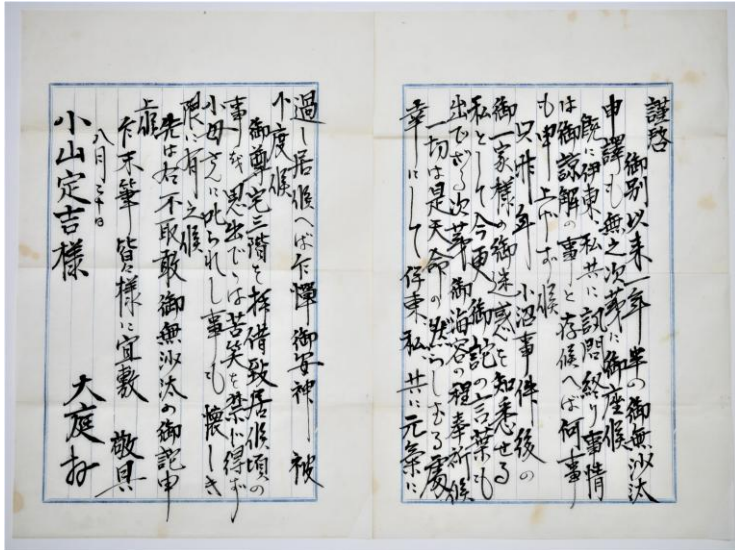 謹啓
御別以来一年半の御無沙汰
申譯も無之次第に御座候
既に伊東、私共に訊問終り事情
は御諒解の事と存候へば何事
も申し上げず候
只昨年小沼事件後の
御一家様の御迷惑を知悉せる
私として今更御詫の言葉も
出でざる次第御海容の程奉祈候
一切は是天命の然らしむる處
幸にして伊東私共に元氣に
過し居候へば乍憚御安神被
下度候
御尊宅三階を拝借致居候頃の
事など思出でゝは苦笑を禁じ得ず
小母さんに叱られし事も懐しき
限に有之候
先は右不取敢御無沙汰の御詫申
上候
乍末筆皆々様に宜敷 敬具
八月三十日
大庭
小山定吉様